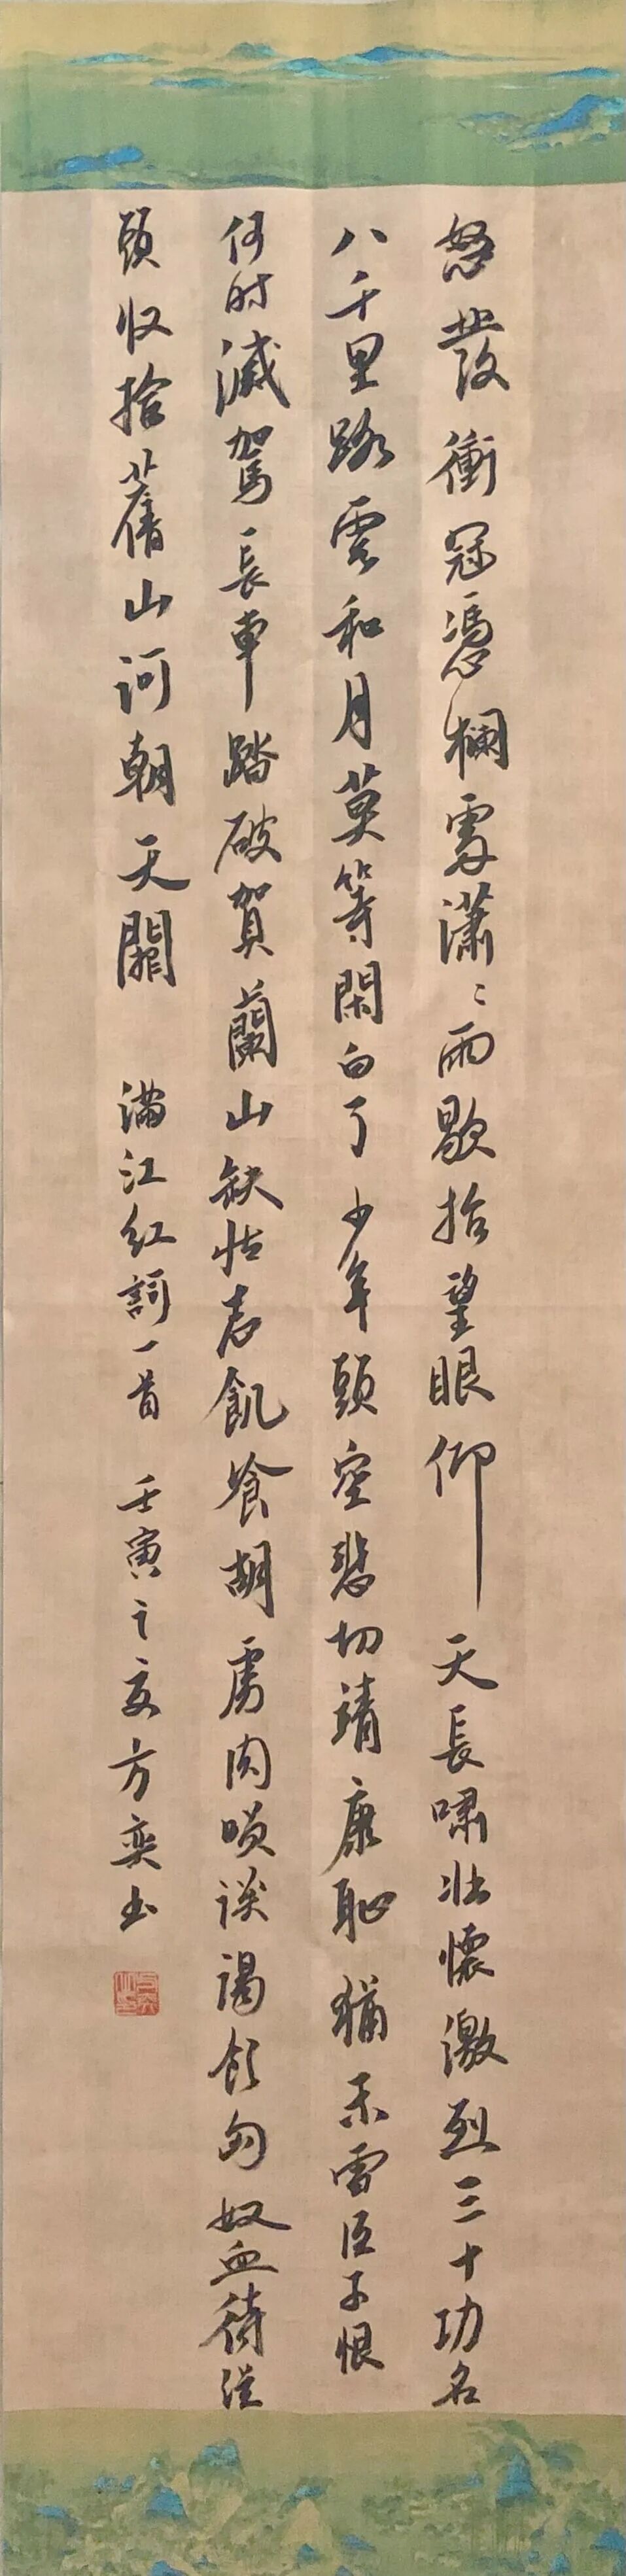 怒發衝冠憑欄處瀟〻雨歇抬望眼仰天長嘯壯懷激烈三十功名
八千里路雲和月莫等閑白了少年頭空悲切靖康恥猶未雪臣子恨
何時滅駕長車踏破賀蘭山缺壯志飢喰胡虜肉咲談渴飲匈奴血待從
頭收拾舊山河朝天闕 滿江紅詞一首 壬寅之夏方奕書